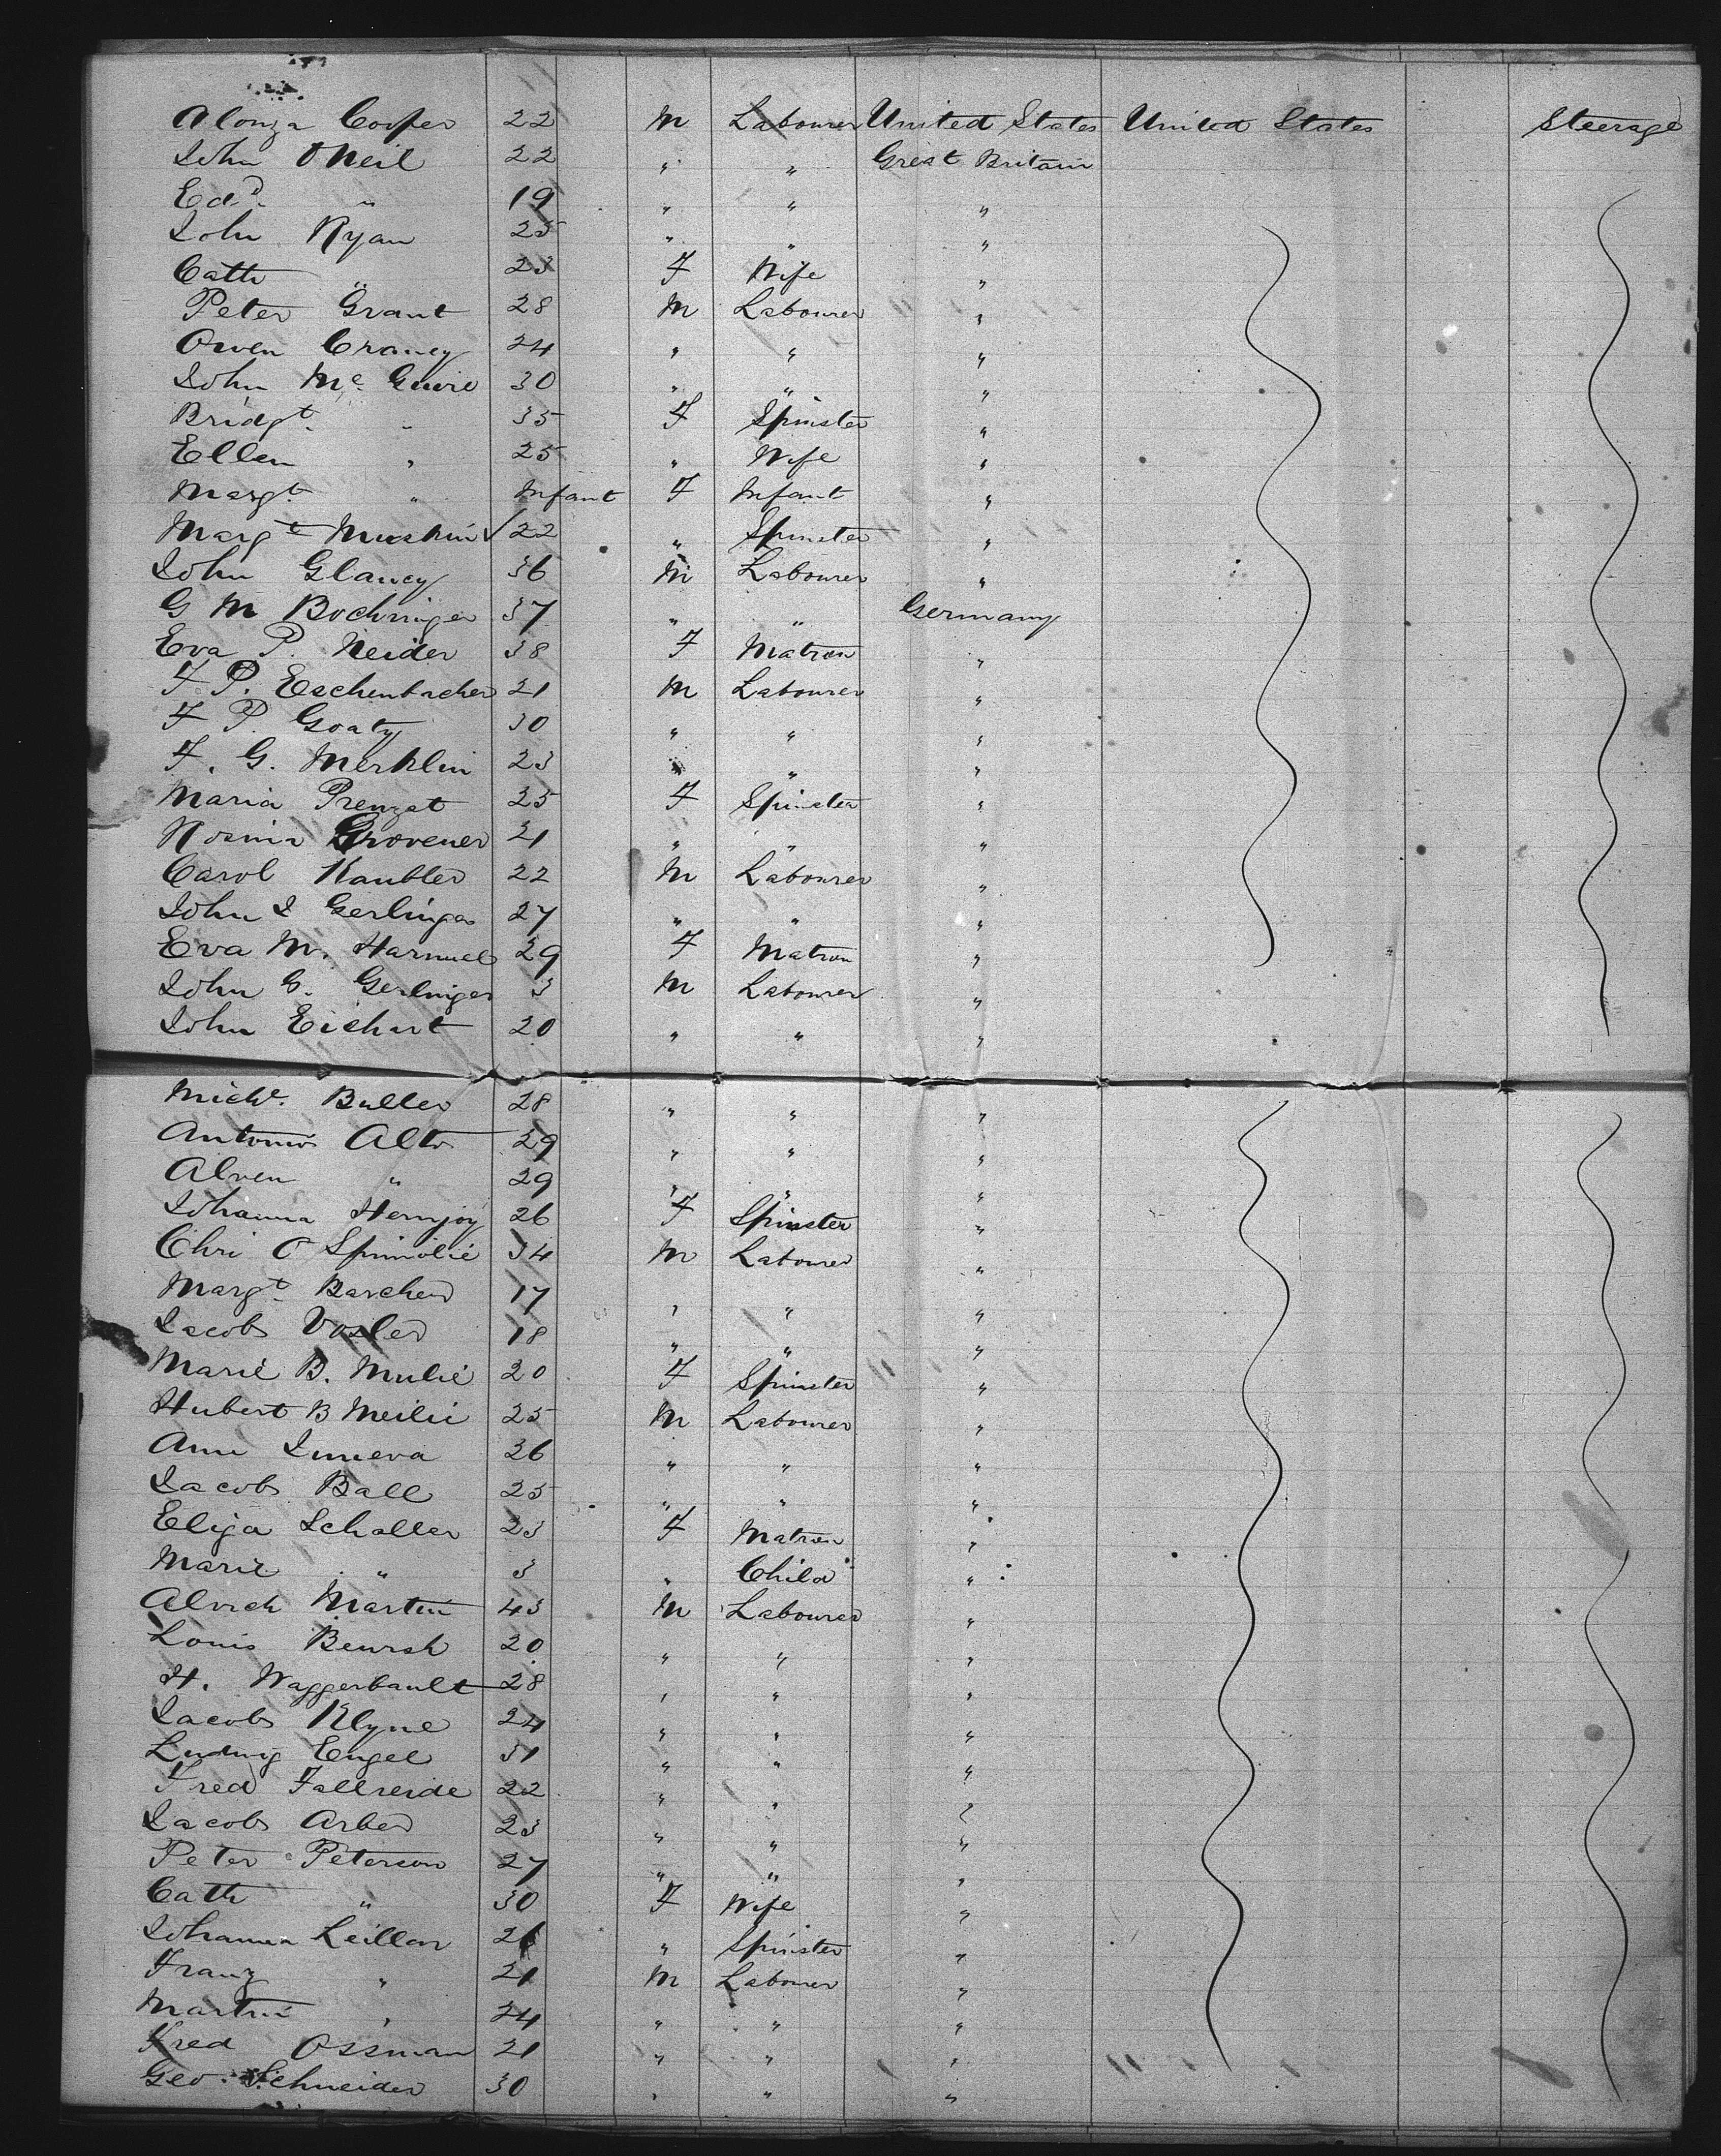 Alonza Cooper 22 M Labourer United States United States Steerage
John O'Neil 22 " " Great Britain
Edd. " 19 " " "
John Ryan 25 " " "
Cath " 23 F Wife "
Peter Grant 28 M Labourer "
Owen Craney 24 " " "
John Mc. Guire 30 " " "
Bridgt. " 35 F Spinster "
Ellen " 25 " Wife "
Margt. " Infant F Infant "
Margt 22 " Spinster "
John Glancy 36 M Labourer "
G M Bochringer 37 " " Germany
Eva P. Neider 38 F Matron "
F. P. Eschenbacher 21 M Labourer "
F P. Goaty 30 " " "
F. G. Merklin 23 " " "
Maria Prengat 25 F Spinster "
Rosina Grovener 21 " " "
Carol Kaubler 22 M Labourer "
John J Gerlinger 27 " " "
Eva M. Harmuel 29 F Matron "
John G. Gerlinger 3 M Labourer "
John Eichart 20 " " "
Michl. Buller 28 " " "
Antonio Alto 29 " " "
Alven " 29 " " "
Johanna 26 F Spinster "
Chri O 34 M Labourer "
Margt. Barcher 17 " " "
Jacob Vosler 18 " " "
Marie B. Mulie 20 F Spinster "
Hubert B Meilii 25 M Labourer "
Ann 26 " " "
Jacob Ball 25 " " "
Eliza Schaller 23 F Matron "
Marie " 3 " Child "
Alrich Martin 43 M Labourer "
Louis Beursh 20 " " "
H. Waggerbault 28 " " "
Jacob Klyne 24 " " "
Ludwig Engel 31 " " "
Fred Fallreide 22 " " "
Jacob Arber 23 " " "
Peter Peterson 27 " " "
Cath " 30 F Wife "
Johanna Leillan " Spinster "
Franz " 21 M Labourer "
Martin " 24 " " "
Fred Ossman 21 " " "
Geo. Schneider 30 " " "